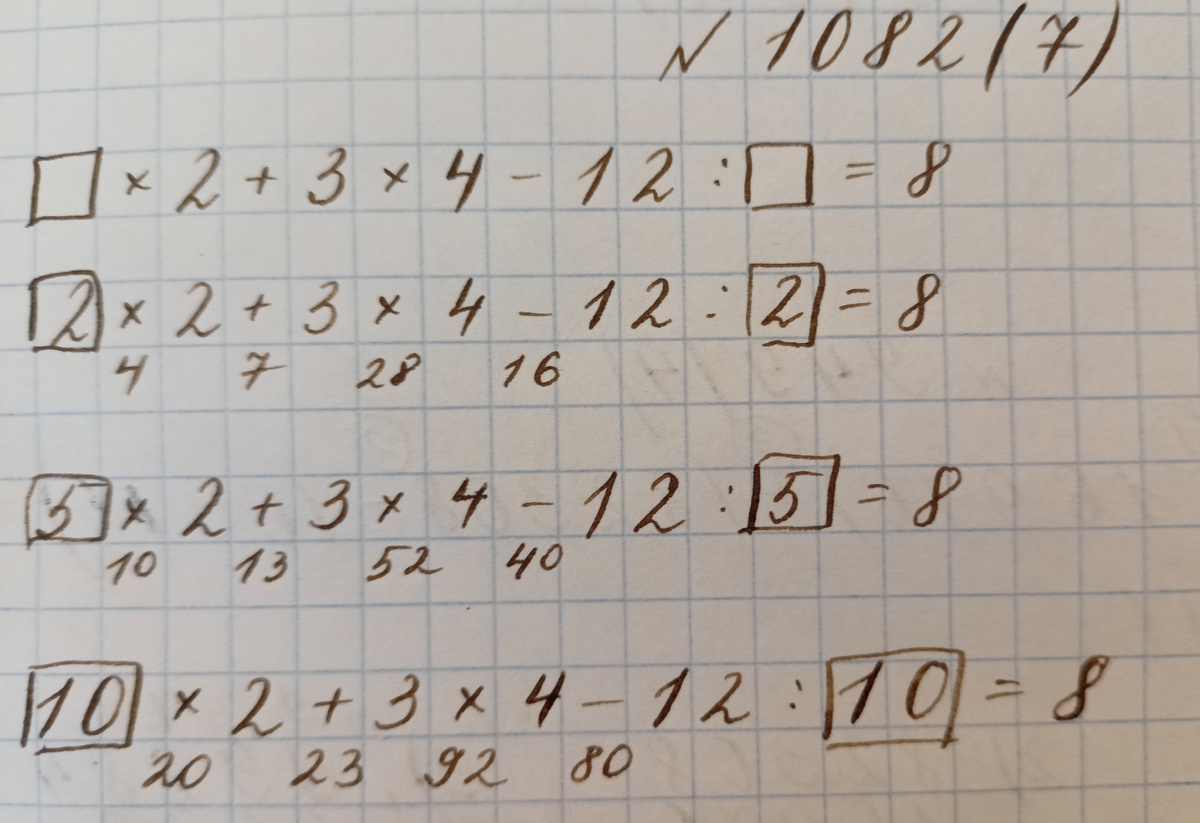 № 1082 (7)
□ × 2 + 3 × 4 - 12 : □ = 8
2 × 2 + 3 × 4 - 12 : 2 = 8
4 7 28 16
5 × 2 + 3 × 4 - 12 : 5 = 8
10 13 52 40
10 × 2 + 3 × 4 - 12 : 10 = 8
20 23 92 80